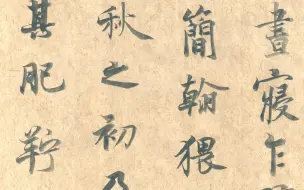 晝寢乍
簡翰猥
秋之初乃
其肥羜